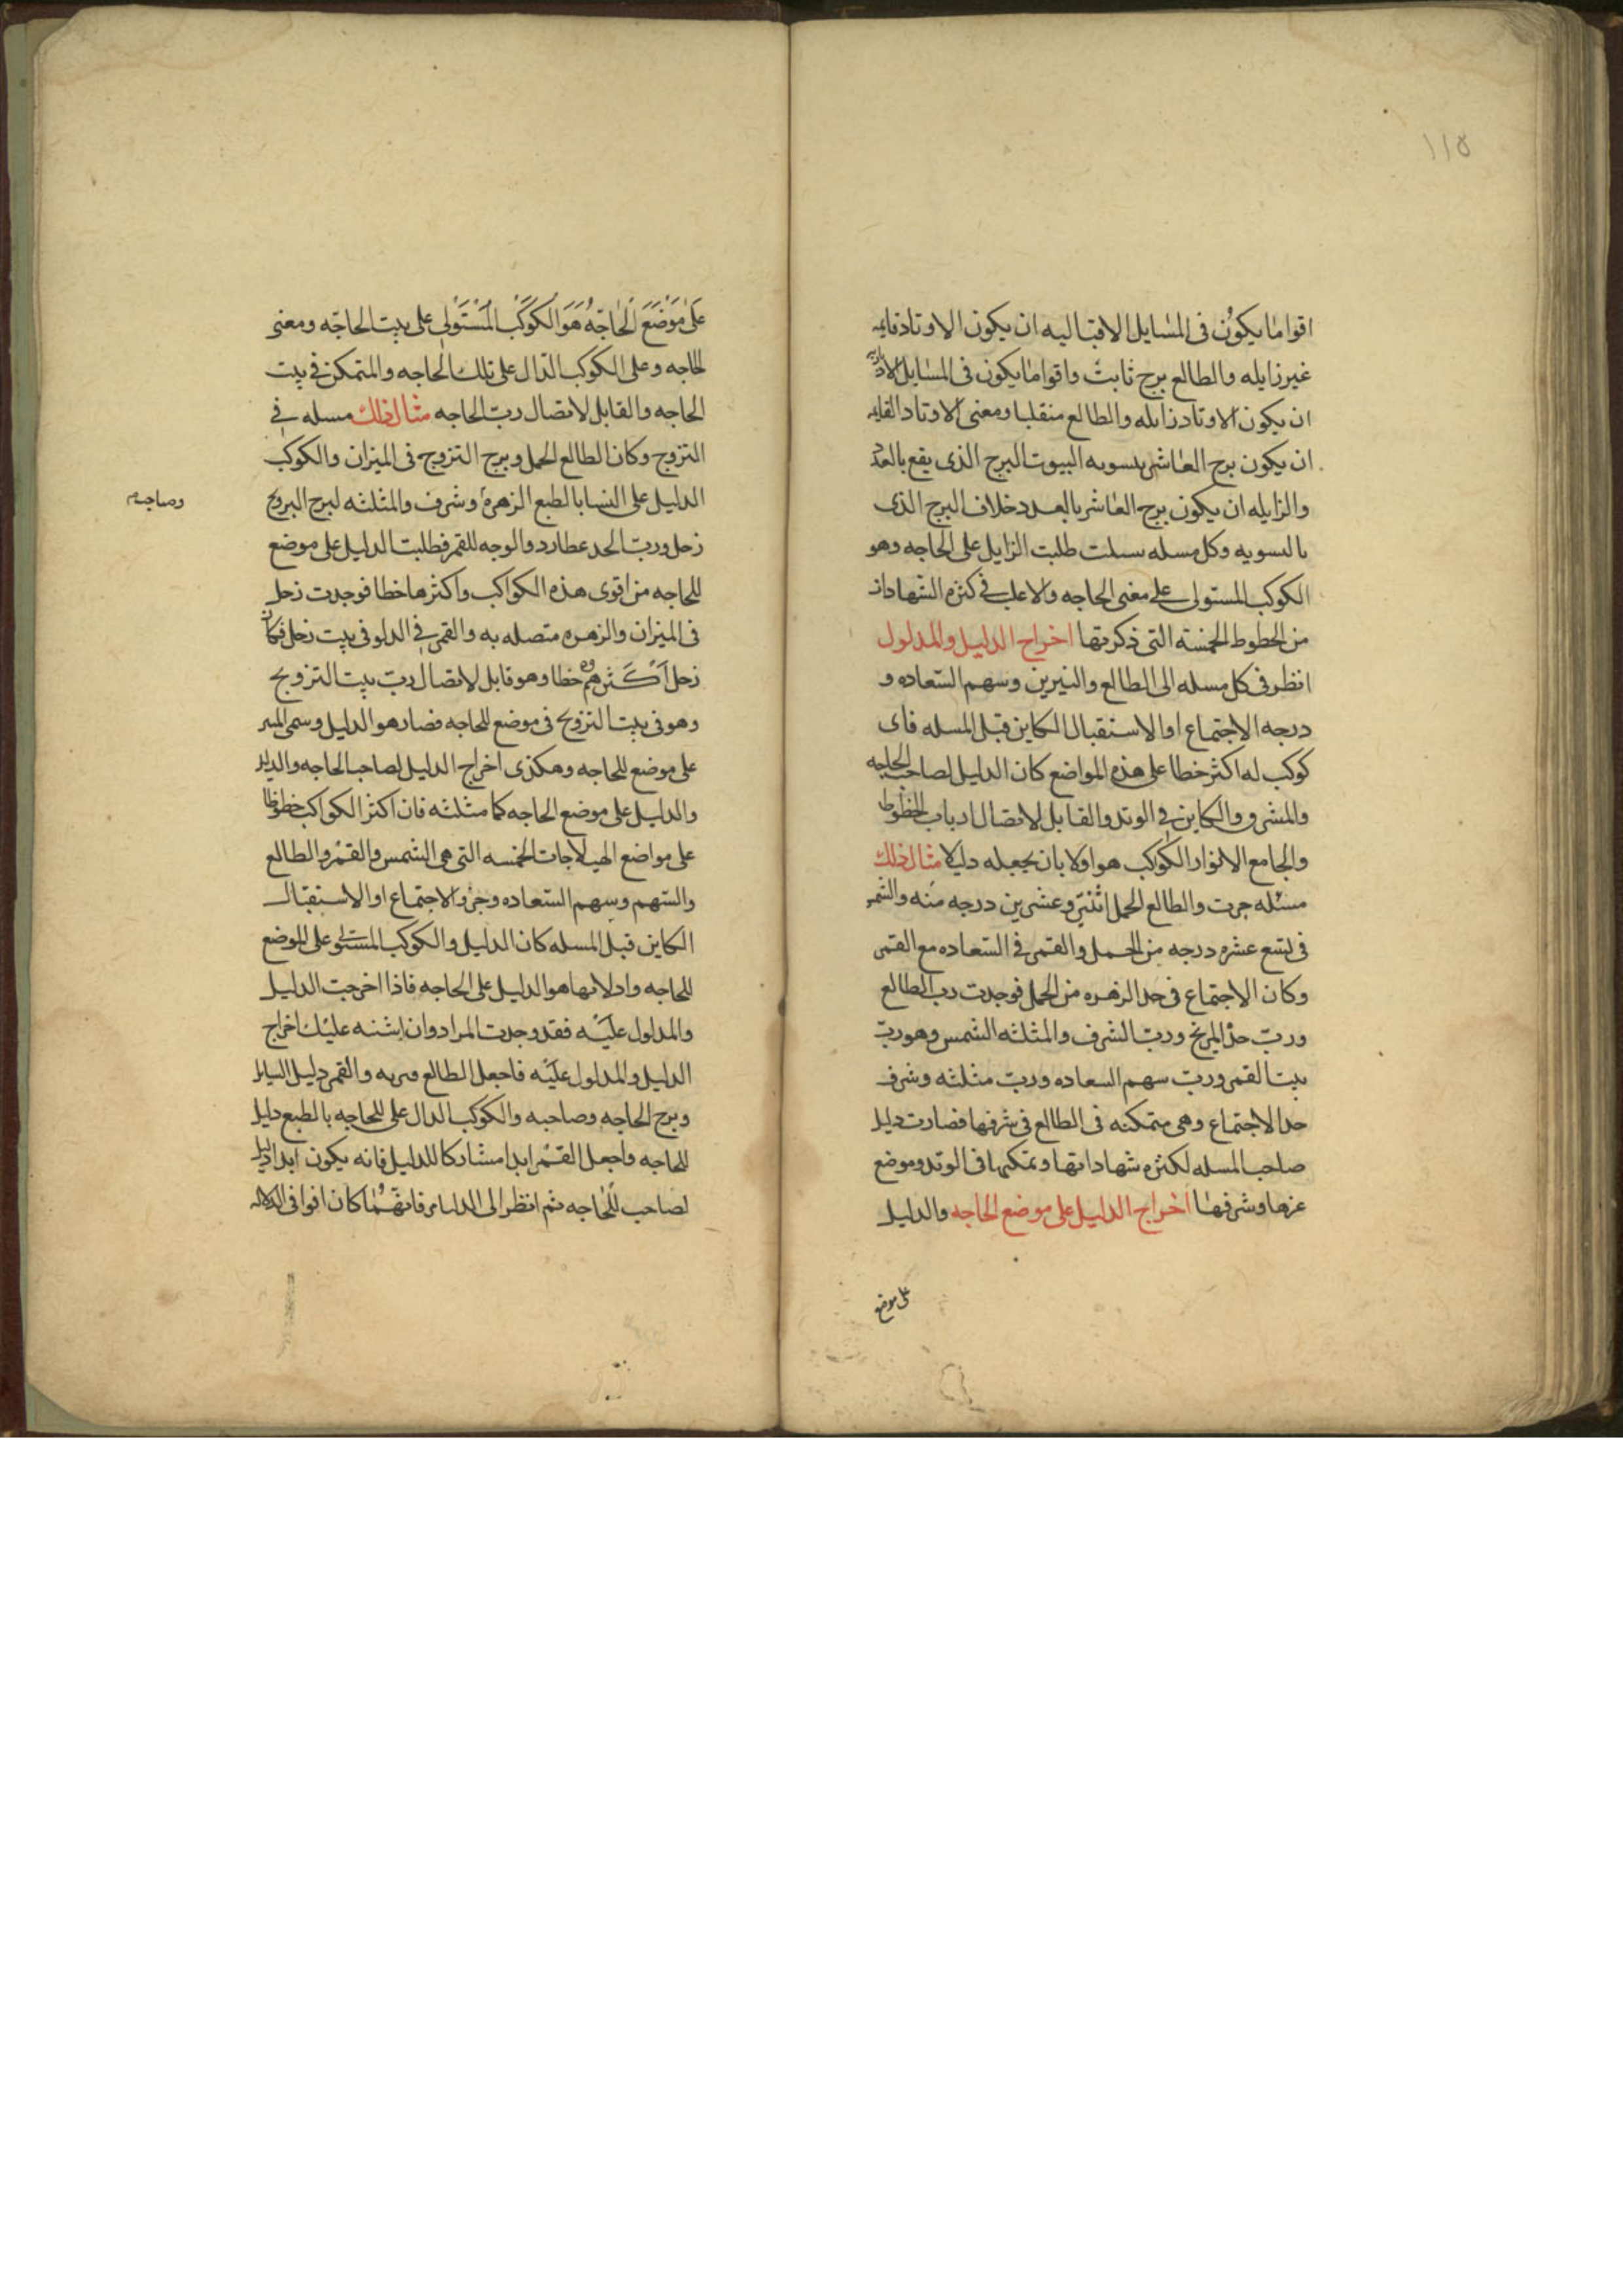 ١١٥
اقوا ما يكون في المسايل الاقباليه ان يكون الاوتاد قايمه
غير زايله والطالع برج ثابت واقوا ما يكون في المسايل الادباريه
ان يكون الاوتاد زايله والطالع منقلبا ومعنى الاوتاد القايمه
ان يكون برج العاشر بتسويه البيوت البرج الذي يقع بالعدد
والزايله ان يكون برج العاشر بالعدد خلاف البرج الذي
بالتسويه وكل مسله سيلت طلبت الزايل على الحاجه وهو
الكوكب المستولى على معنى الحاجه والاغلب في كثره الشهادات
من الحظوظ الخمسة التي ذكرتها اخراج الدليل والمدلول
انظر في كل مسله الى الطالع والنيرين وسهم السعاده و
درجه الاجتماع او الاستقبال الكاين قبل المسله فاى
كوكب له اكثر خطا على هذه المواضع كان الدليل لصاحب الحاجه
والمشرق والكاين في الوتد والقابل لاتصال ارباب الحظوظ
والجامع الانوار الكوكب هو اولا بان يجعله دليلا مثال ذلك
مسئله جرت والطالع الحمل اثنين وعشرين درجه منه والشمس
في تسع عشره درجه من الحمل والقمر في السعاده مع القمر
وكان الاجتماع في حد الزهره من الحمل فوجدت رب الطالع
ورب حد المريخ ورب الشرف والمثلثه الشمس وهو رب
بيت القمر ورب سهم السعاده ورب مثلثه وشرف
حد الاجتماع وهي متمكنه في الطالع في شرفها فصارت دليل
صاحب المسله لكثره شهاداتها وتمكنها في الوتد وموضع
عزها وشرفها اخراج الدليل على موضع الحاجه والدليل
على موضع
على موضع الحاجة هو الكوكب المستولى على بيت الحاجه ومعنى
الحاجه وعلى الكوكب الدال على تلك الحاجه والمتمكن في بيت
الحاجه والقابل لاتصال رب الحاجه مثال ذلك مسله في
التزوج وكان الطالع الحمل وبرج التزوج في الميزان والكوكب
الدليل على النسا بالطبع الزهرة وشرف والمثلثه لبرج البروج
وصاحبه
زحل ورب الحد عطارد والوجه للقمر فطلبت الدليل على موضع
للحاجه من اقوى هذه الكواكب واكثرها خطا فوجدت زحل
في الميزان والزهره متصله به والقمر في الدلو في بيت زحل فكان
زحل اكثرهم خطا وهو قابل لاتصال رب بيت التزويج
وهو في بيت التزويج في موضع للحاجه فصار هو الدليل وسمى
على موضع للحاجه وهكذى اخراج الدليل لصاحب الحاجه والدليل
والدليل على موضع الحاجه كما مثلته فان اكثر الكواكب حظوظا
على مواضع الهيلاجات الخمسه التي هى الشمس والقمر والطالع
والسهم وسهم السعاده وجزو الاجتماع او الاستقبال
الكاين قبل المسله كان الدليل والكوكب المستولى على الموضع
للحاجه وادلاتها هو الدليل على الحاجه فاذا اخرجت الدليل
والمدلول عليه فقد وجدت المراد وان اشتبه عليك اخراج
الدليل والمدلول عليه فاجعل الطالع وربه والقمر دليل السايل
وبرج الحاجه وصاحبه والكوكب الدال على للحاجه بالطبع دليل
للحاجه واجعل القمر ابدا مشاركا للدليل فانه يكون ابدا دليلا
لصاحب للحاجه ثم انظر الى الدليلين فايهما كان اقوا في الدلاله